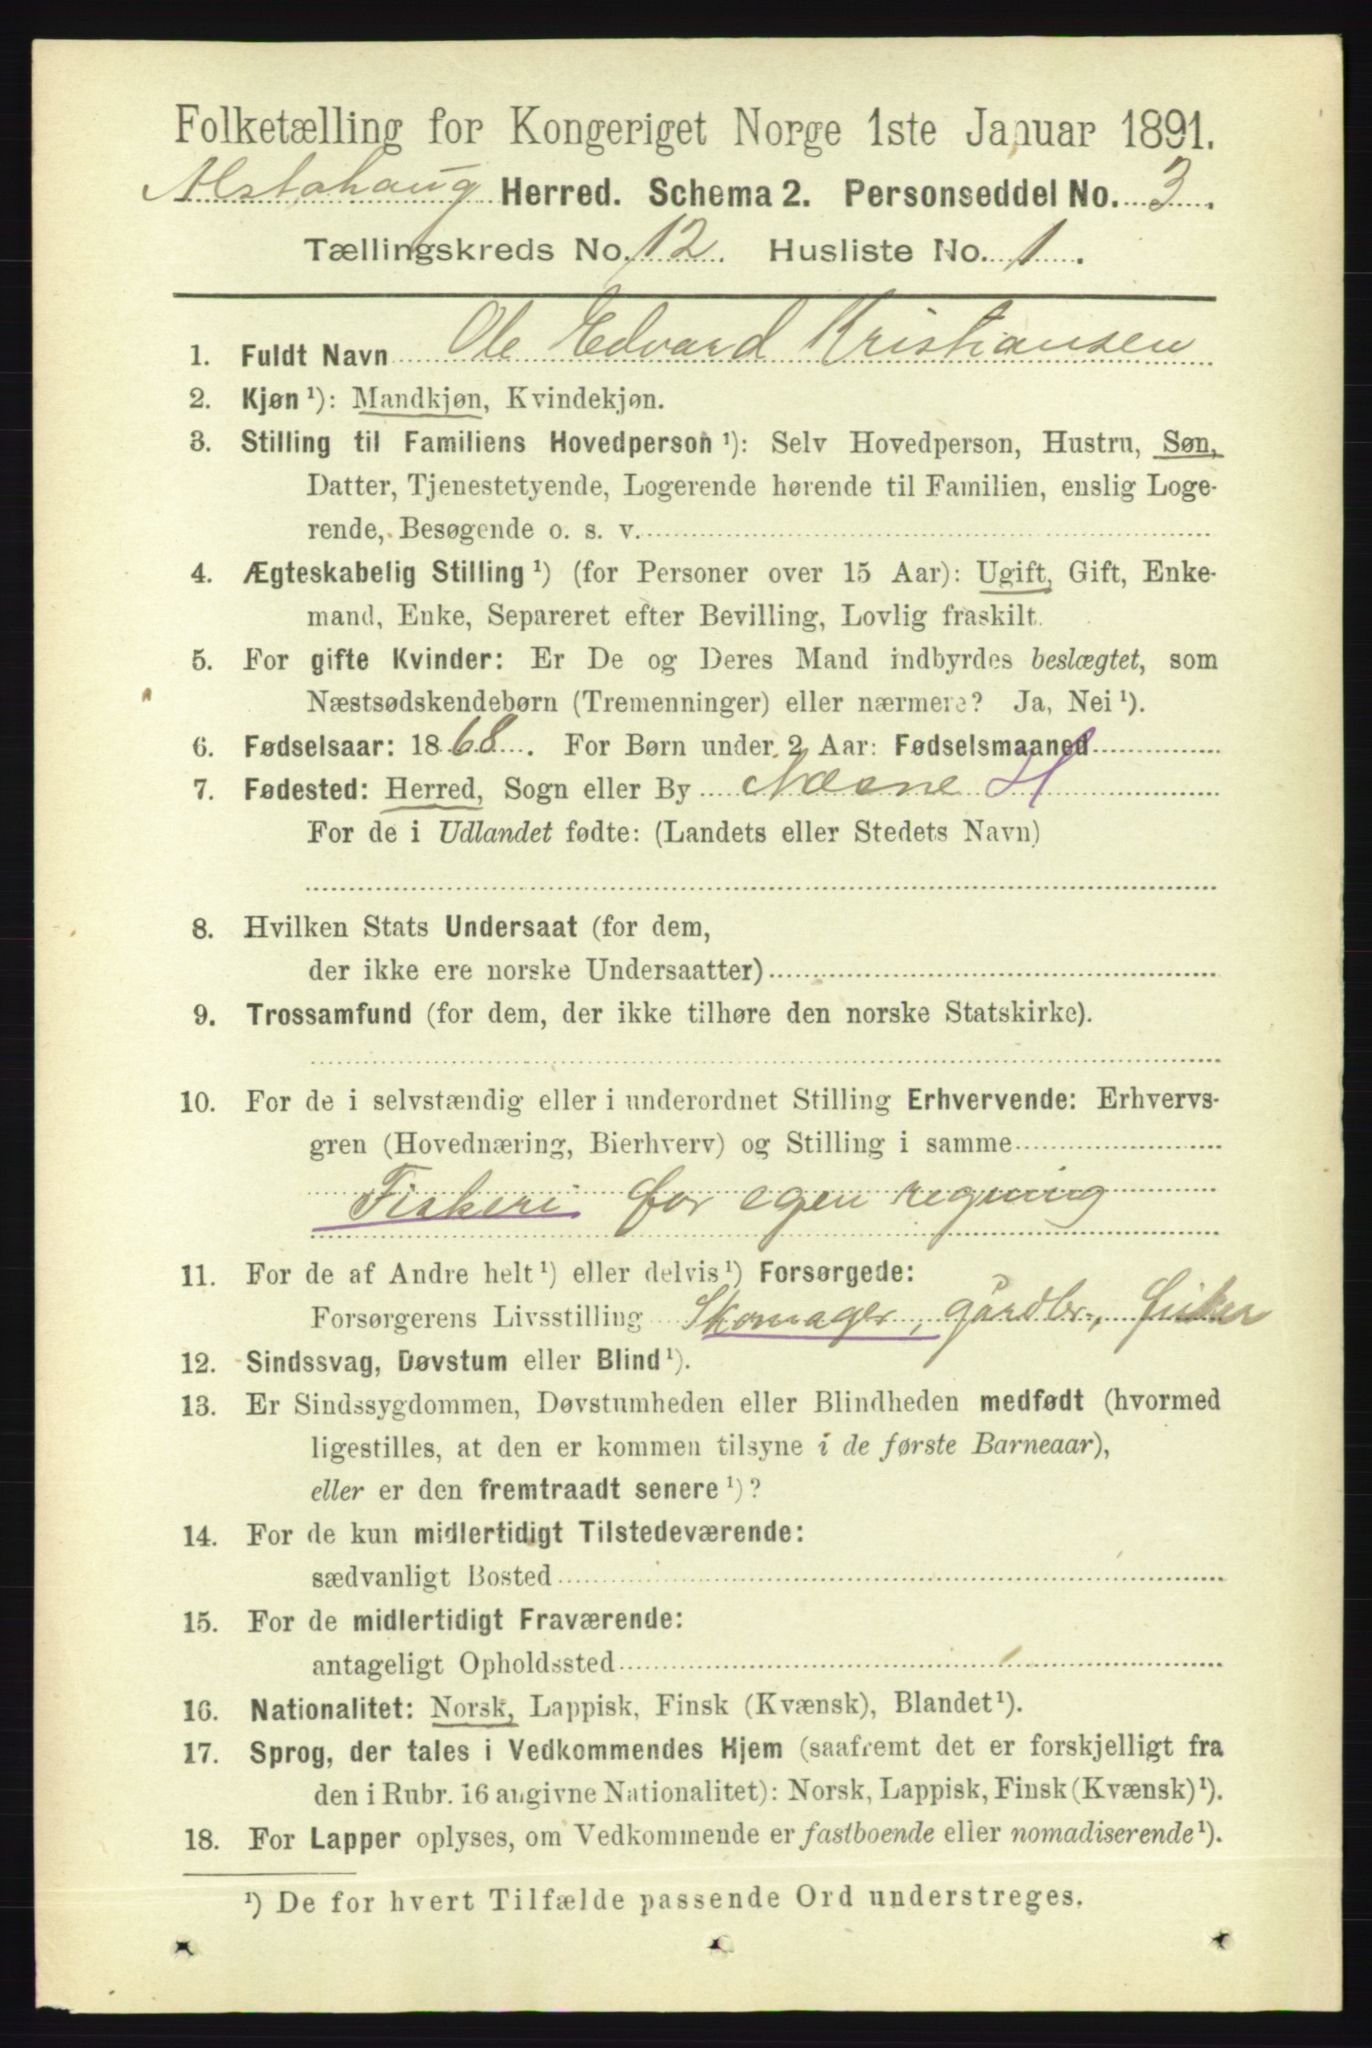 Folketælling for Kongeriget Norge 1ste Januar 1891.
Alstahaug Herred. Schema 2. Personseddel No. 3.
Tællingskreds No. 12. Husliste No. 1.
1. Fuldt Navn Ole Edvard Kristiansen
2. Kjøn ¹): Mandkjøn, Kvindekjøn.
3. Stilling til Familiens Hovedperson ¹): Selv Hovedperson, Hustru, Søn,
Datter, Tjenestetyende, Logerende hørende til Familien, enslig Loge-
rende, Besøgende o. s. v.
4. Ægteskabelig Stilling ¹) (for Personer over 15 Aar): Ugift, Gift, Enke-
mand, Enke, Separeret efter Bevilling, Lovlig fraskilt.
5. For gifte Kvinder: Er De og Deres Mand indbyrdes beslægtet, som
Næstsødskendebørn (Tremenninger) eller nærmere? Ja, Nei ¹).
6. Fødselsaar: 1868. For Børn under 2 Aar: Fødselsmaaned
7. Fødested: Herred, Sogn eller By Næsne H
For de i Udlandet fødte: (Landets eller Stedets Navn)
8. Hvilken Stats Undersaat (for dem,
der ikke ere norske Undersaatter)
9. Trossamfund (for dem, der ikke tilhøre den norske Statskirke).
10. For de i selvstændig eller i underordnet Stilling Erhvervende: Erhvervs-
gren (Hovednæring, Bierhverv) og Stilling i samme
Fiskeri for egen regning
11. For de af Andre helt ¹) eller delvis ¹) Forsørgede:
Forsørgerens Livsstilling Skomager, gårdbr., fisker
12. Sindssvag, Døvstum eller Blind ¹).
13. Er Sindssygdommen, Døvstumheden eller Blindheden medfødt (hvormed
ligestilles, at den er kommen tilsyne i de første Barneaar),
eller er den fremtraadt senere ¹)?
14. For de kun midlertidigt Tilstedeværende:
sædvanligt Bosted
15. For de midlertidigt Fraværende:
antageligt Opholdssted
16. Nationalitet: Norsk, Lappisk, Finsk (Kvænsk), Blandet ¹).
17. Sprog, der tales i Vedkommendes Hjem (saafremt det er forskjelligt fra
den i Rubr. 16 angivne Nationalitet): Norsk, Lappisk, Finsk (Kvænsk) ¹).
18. For Lapper oplyses, om Vedkommende er fastboende eller nomadiserende ¹).
¹) De for hvert Tilfælde passende Ord understreges.